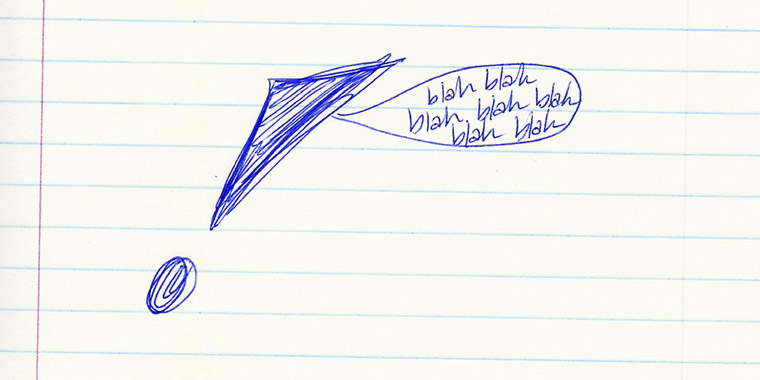 blah blah
blah blah blah
blah blah